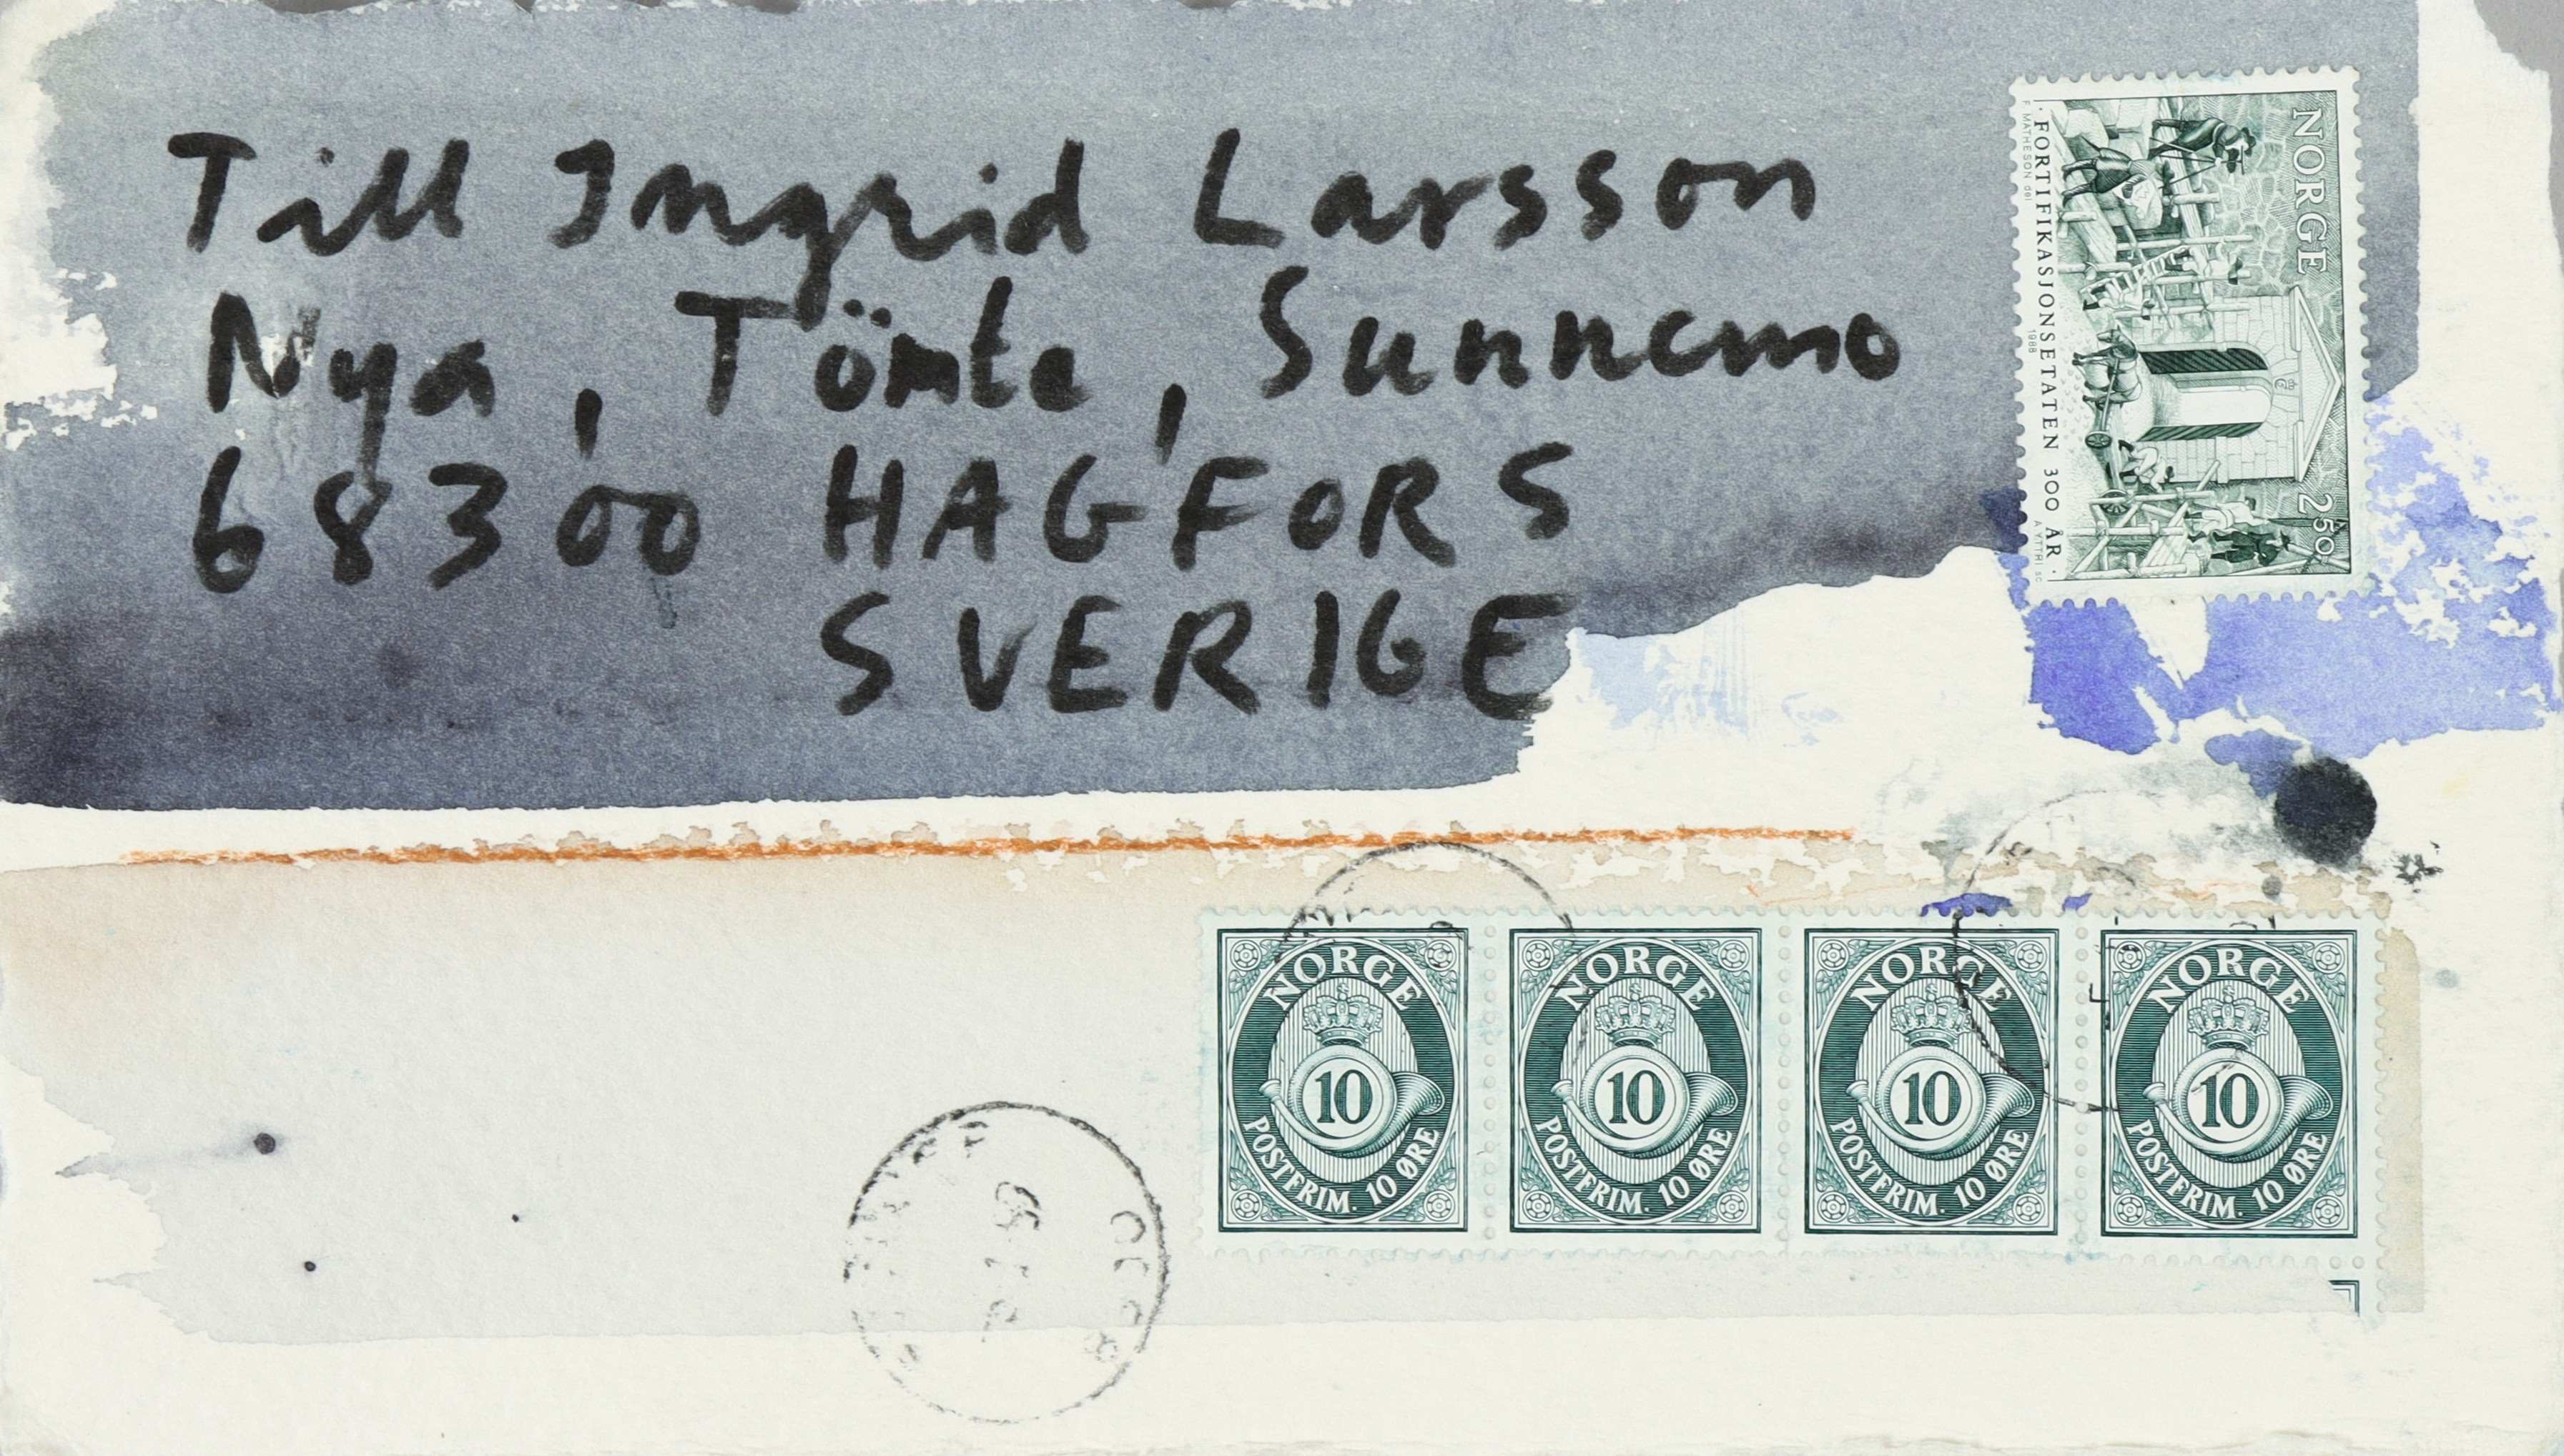 Till Ingrid Larsson
Nya, Tömte, Sunnemo
68300 HAGFORS
SVERIGE
NORGE
250
FORTIFIKASJONSETATEN 300 ÅR
F MATHESON del
1988
A YTTRI sc
NORGE
10
POSTFRIM. 10 ØRE
NORGE
10
POSTFRIM. 10 ØRE
NORGE
10
POSTFRIM. 10 ØRE
NORGE
10
POSTFRIM. 10 ØRE